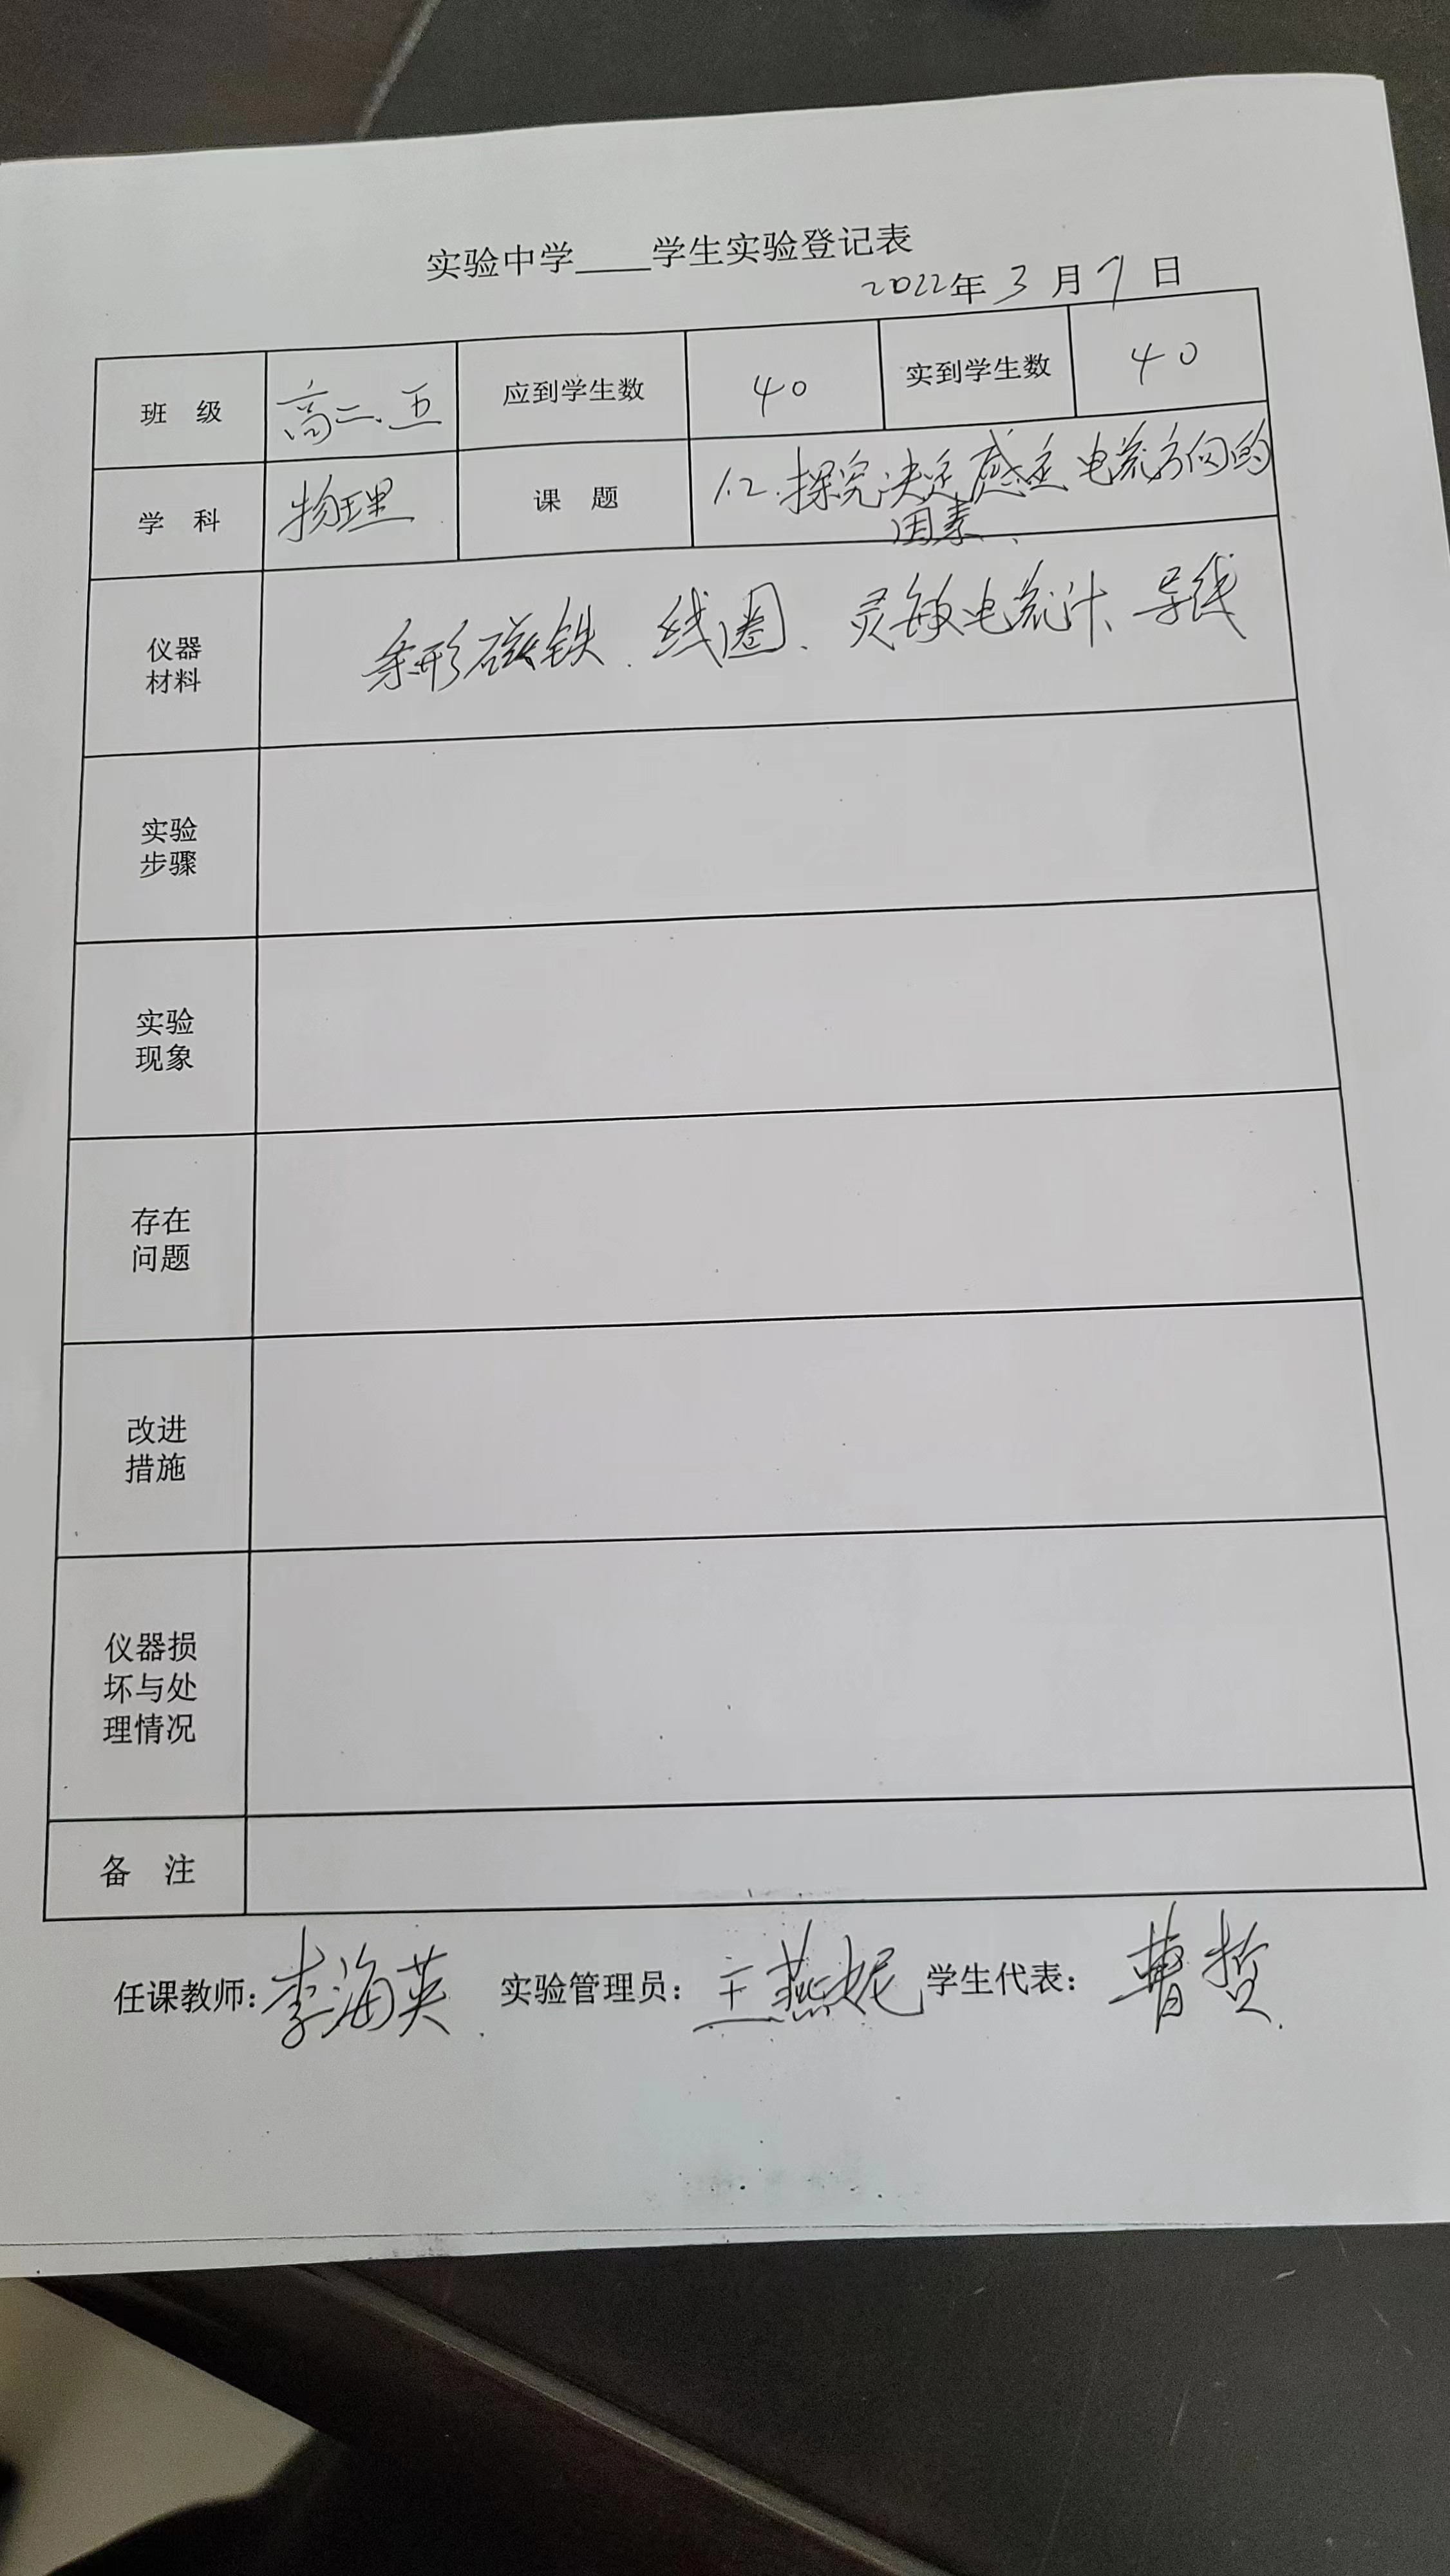 实验中学____学生实验登记表
2022年 3 月 7 日
班 级 高二.五 应到学生数 40 实到学生数 40
学 科 物理 课 题 1.2.探究决定感应电流方向的
因素.
仪器
材料
条形磁铁、线圈、灵敏电流计、导线
实验
步骤
实验
现象
存在
问题
改进
措施
仪器损
坏与处
理情况
备 注
任课教师: 李海英. 实验管理员: 王燕妮 学生代表: 曹哲.